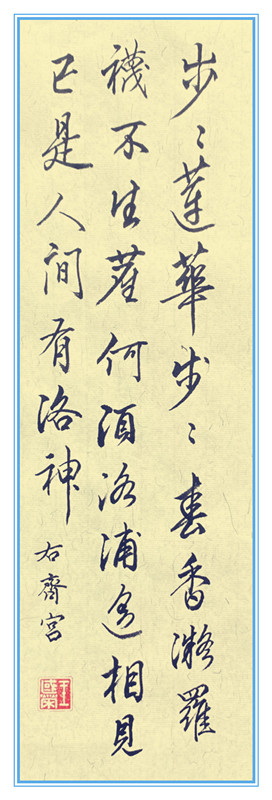 步〻蓮華步〻春香凝羅
襪不生塵何湏洛浦遙相見
已是人间有洛神
右齋宮